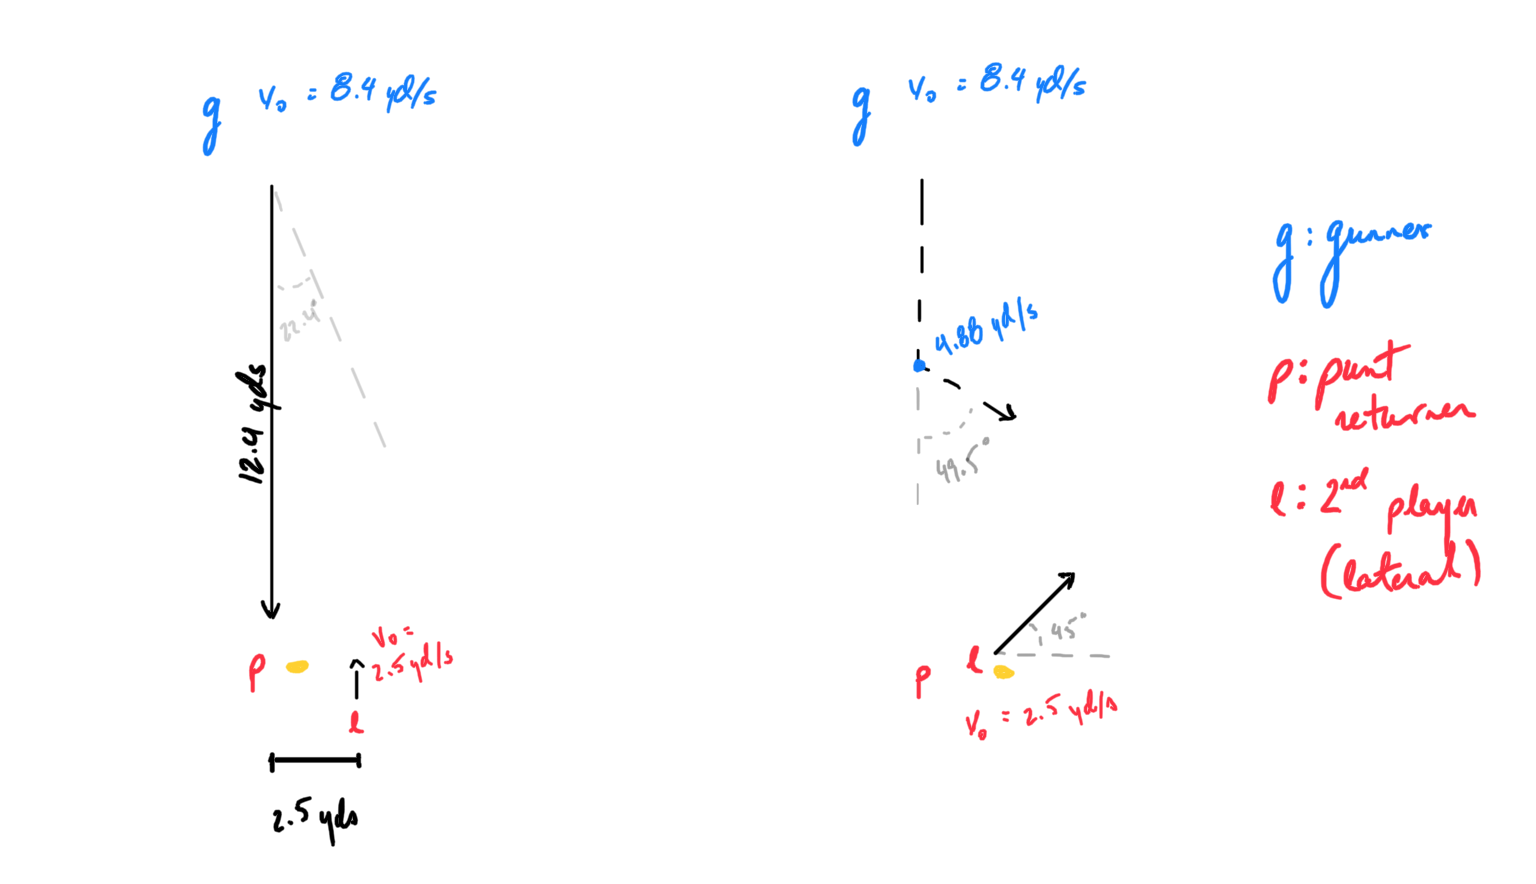 g v₀ = 8.4 yd/s
22.4°
12.4 yds
p
v₀ =
2.5 yd/s
l
2.5 yds
g v₀ = 8.4 yd/s
4.88 yd/s
49.5°
45°
p l
v₀ = 2.5 yd/s
g: gunner
p: punt
returner
l: 2nd player
(lateral)